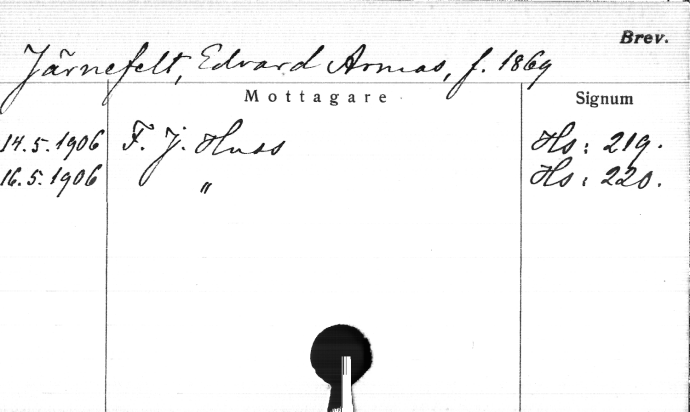 Brev.
Järnefelt, Edvard Armas, f. 1869
Mottagare Signum
14.5.1906 F. J. Huss Hs: 219.
16.5.1906 " Hs: 220.